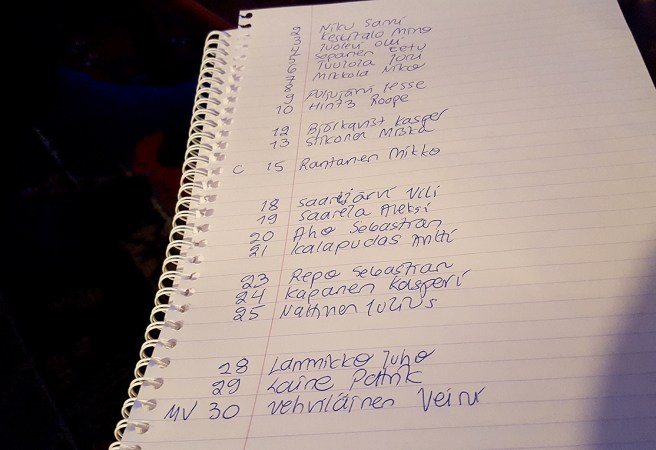 2 Niku Sami
3 Keskitalo Mino
4 Juolevi Olli
5 Sepänen Eetu
6 Tuulola Joni
7 Mikkola Niko
8
9 Puljujärvi Jesse
10 Hintz Roope
12 Björkqvist Kasper
13 Siikonen Miska
C 15 Rantanen Mikko
18 Saarijärvi Vili
19 Saarela Aleksi
20 Aho Sebastian
21 Kalapudas Antti
23 Repo Sebastian
24 Kapanen Kasperi
25 Nättinen Julius
28 Lammikko Juho
29 Laine Patrik
MV 30 Vehviläinen Veini